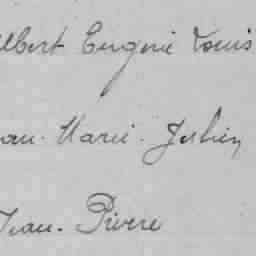 Albert Eugène Louis
Jean-Marie-Julien
Jean-Pierre